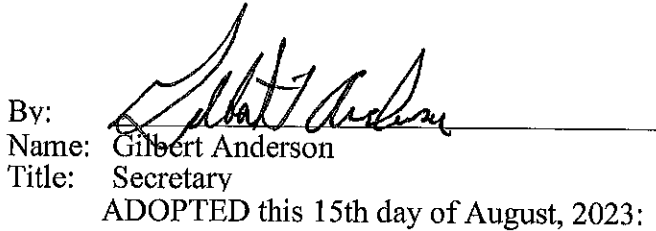 By: Gilbert T Anderson
Name: Gilbert Anderson
Title: Secretary
ADOPTED this 15th day of August, 2023: